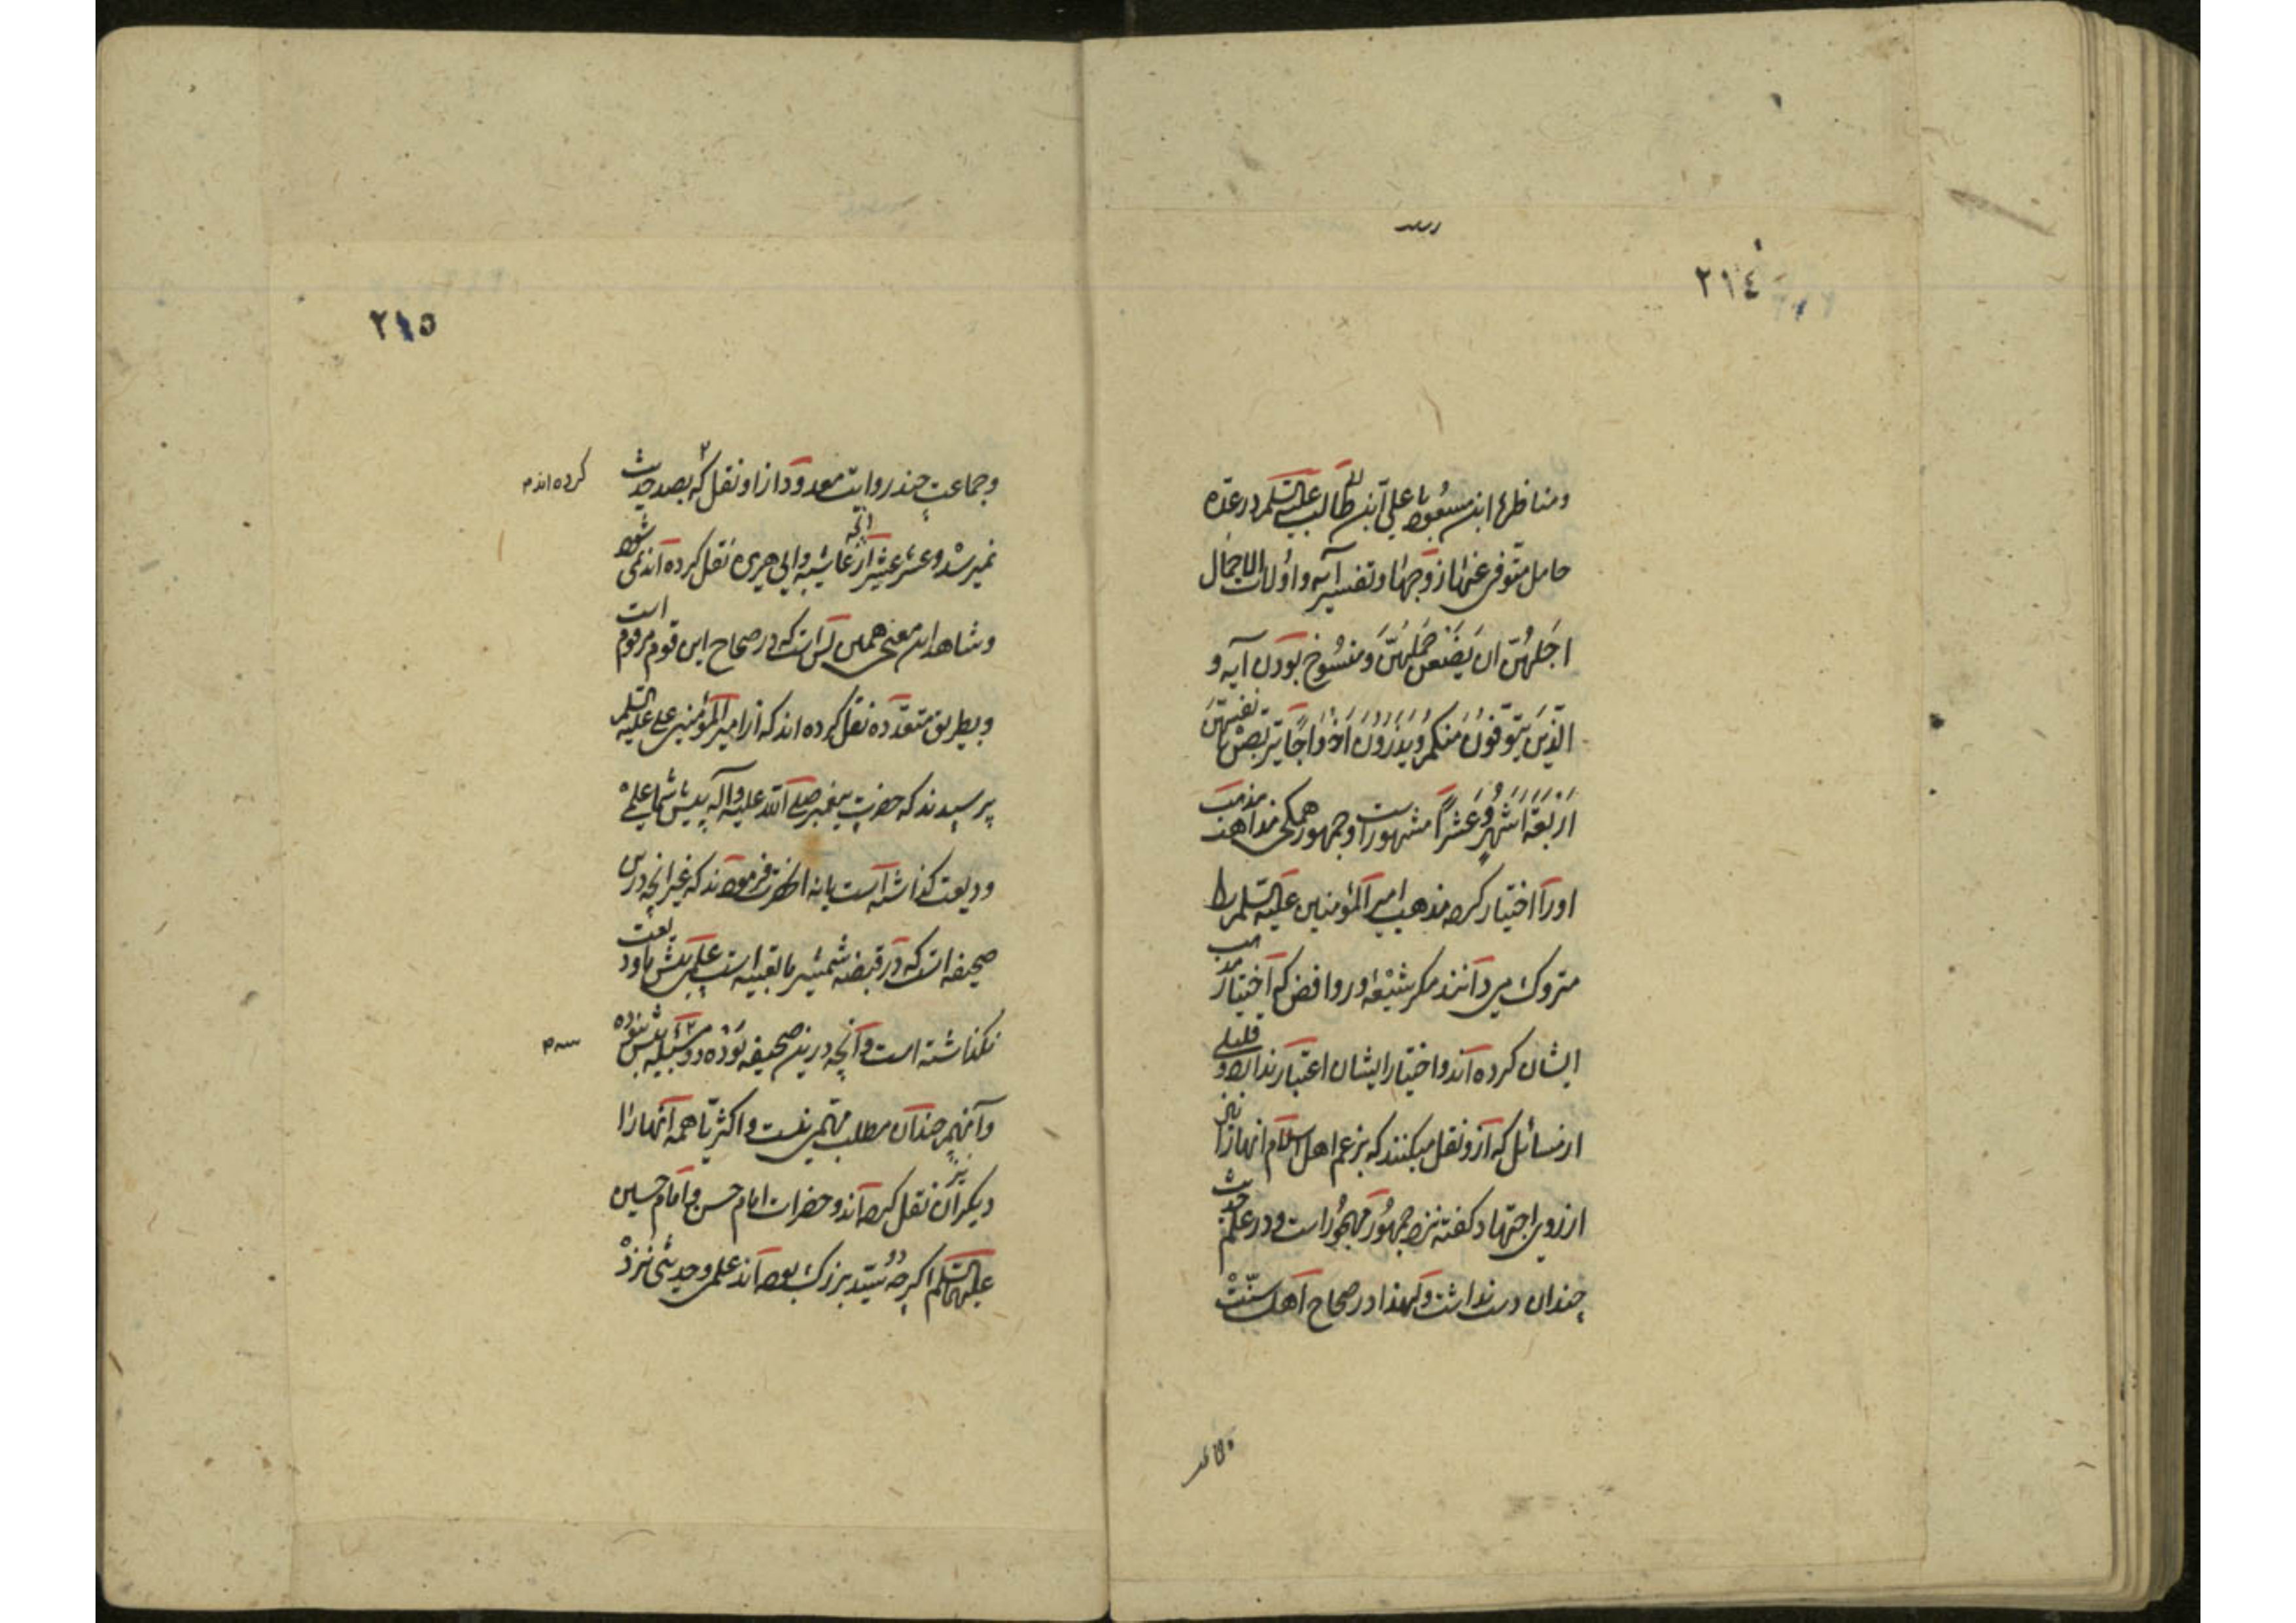 ٢١٤
ومناظرهٔ ابن مسعود با علی ابن ابی طالب علیه السلم در عدّه
حامل متوفی عنها زوجها و تفسیر آیه و اولات الاحمال
اجلهنّ ان یضعن حملهنّ و منسوخ بودن آیه و
الّذین یتوفّون منکم و یذرون ازواجًا یتربّصن بانفسهنّ
اربعة اشهر و عشرًا مشهور است و جمهور همگی مذاهب مذهب
او را اختیار کرده مذهب امیر المؤمنین علیه السلم را
متروک می دانند مگر شیعه و روافض که اختیار مذهب
ایشان کرده اند و اختیار ایشان اعتبار ندارد و قلیلی
از مسائل که ازو نقل میکنند که بزعم اهل اسلام انها را نیز
از روی اجتهاد گفته نزد جمهور مهجور است و در علم حدیث
چندان دست نداشت و لهذا در صحاح اهل سنّت
٢١٥
و جماعت چند روایت معدود از او نقل که بصد حدیث
کرده اند م
نمیرسد و عشر عشیر آنچه از عایشه و ابی هریره نقل کرده اند نمی شود
و شاهد این معنی همین بس است که در صحاح این قوم مرقوم است
و بطریق متعدّده نقل کرده اند که از امیر المؤمنین علی علیه السلم
پرسیدند که حضرت پیغمبر صلی الله علیه و آله پیش شما علمی
ودیعت گذاشته است یا نه انحضرت فرموده اند که غیر انچه درین
صحیفه است که در قبضه شمشیر ما تعبیه است علمی پیش ما ودیعت
نگذاشته است و آنچه درین صحیفه بوده دو مسئله بیش نبوده
و آنهم چندان مطلب مهمّی نیست و اکثر یا همه آنها را
دیگران نیز نقل کرده اند و حضرات امام حسن و امام حسین
علیهما السلم اگرچه دو سیّد بزرگ بوده اند علمی و حدیثی نزد